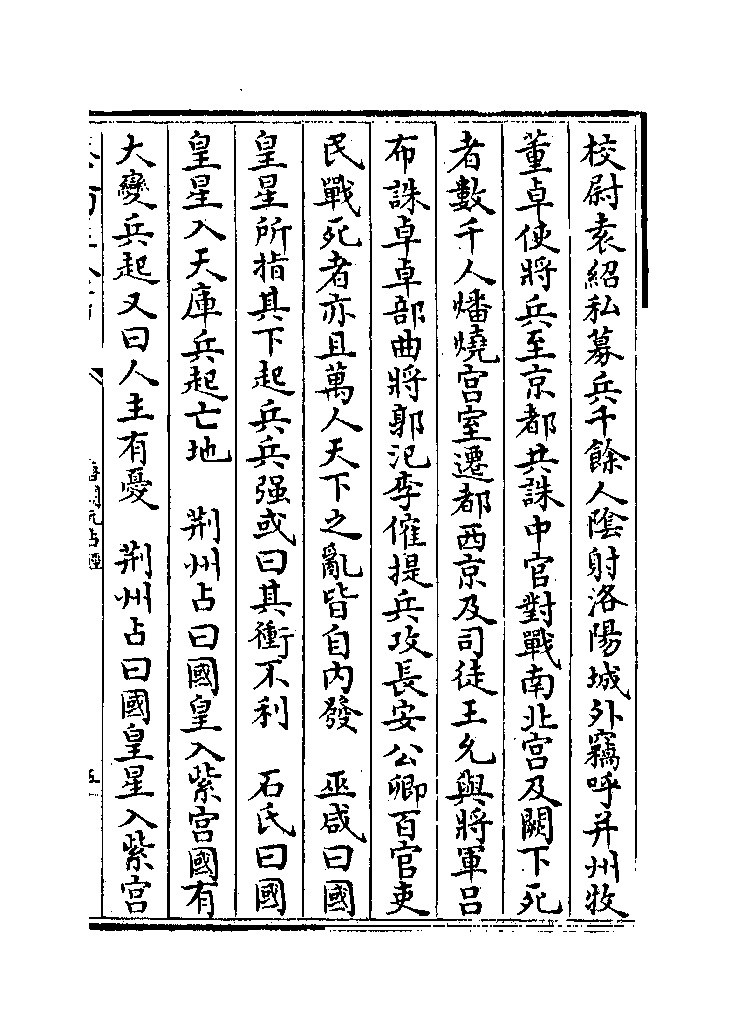 校尉袁紹私募兵千餘人隂射洛陽城外竊呼并州牧
董卓使將兵至京都共誅中官對戰南北宫及闕下死
者數千人燔燒宫室遷都西京及司徒王允與將軍吕
布誅卓卓部曲將郭汜李傕提兵攻長安公卿百官吏
民戰死者亦且萬人天下之亂皆自内發　巫咸曰國
皇星所指其下起兵兵强或曰其衝不利　石氏曰國
皇星入天庫兵起亡地　荆州占曰國皇入紫宫國有
大變兵起又曰人主有憂　荆州占曰國皇星入紫宫
唐開元占經